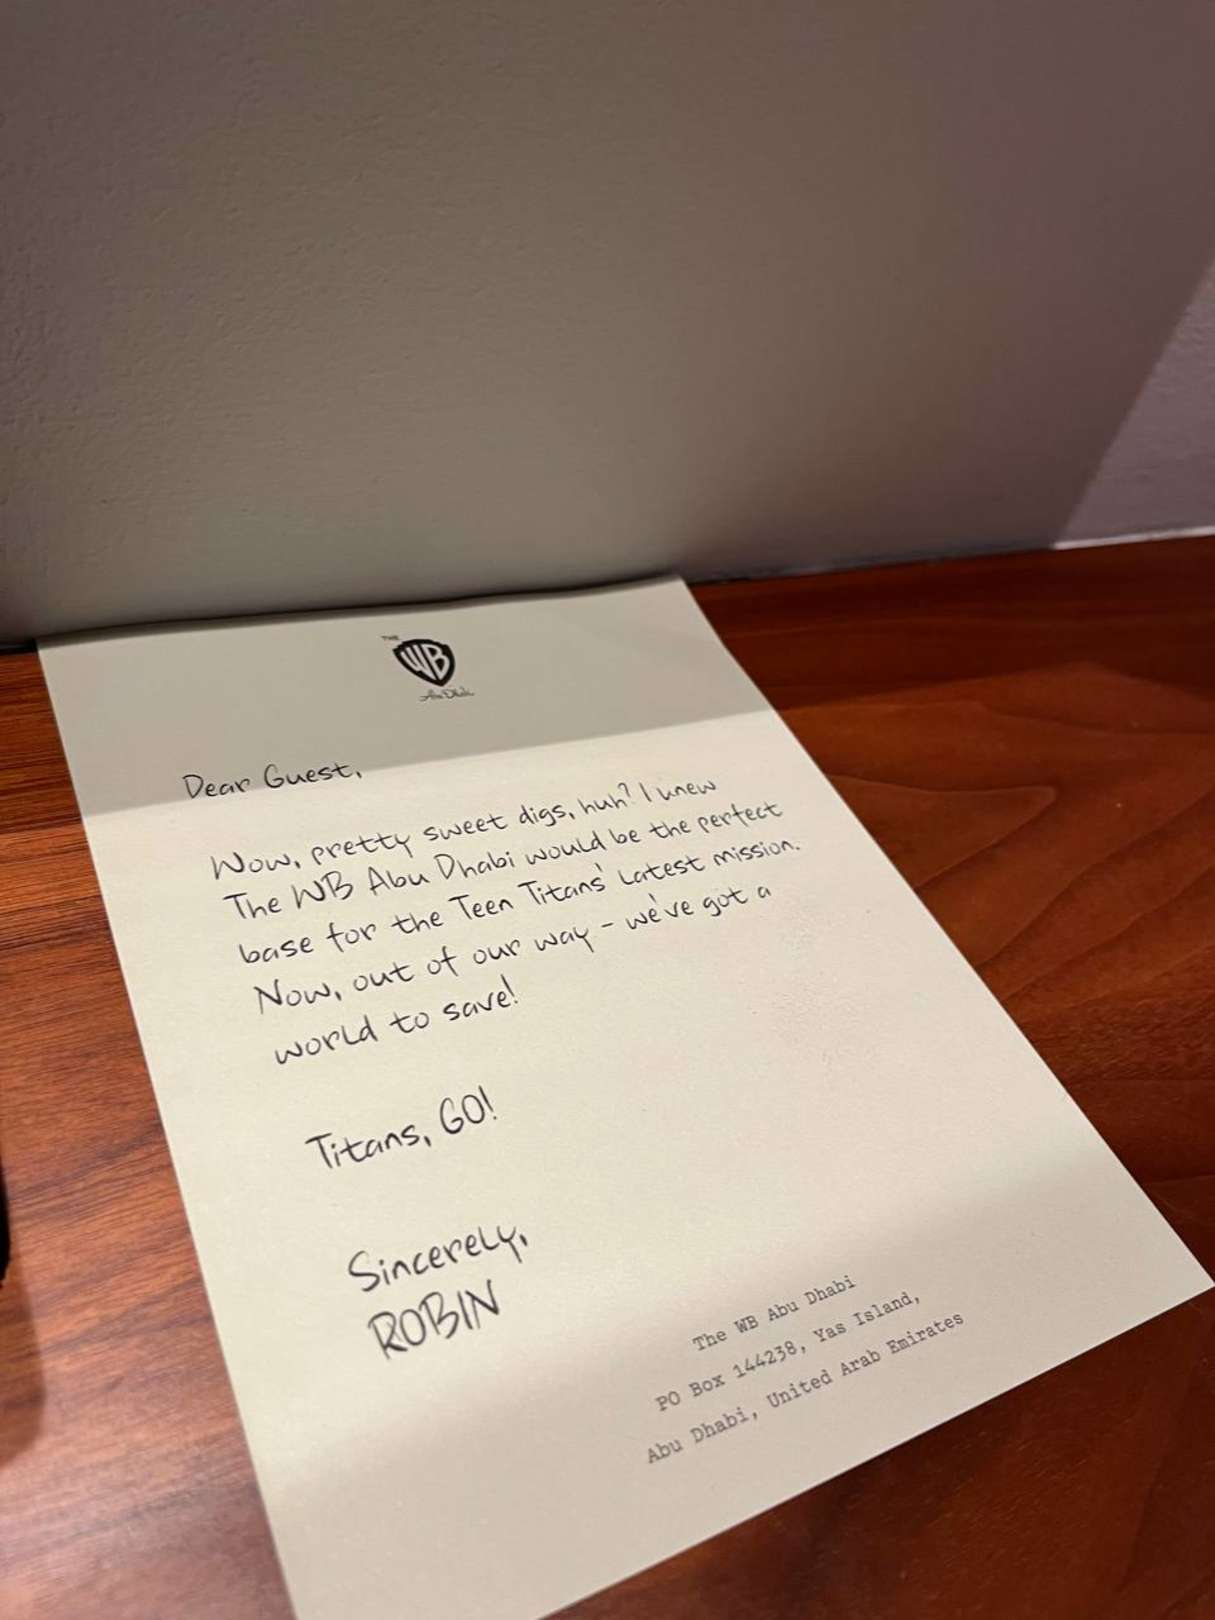 THE
WB
Abu Dhabi
Dear Guest,
Wow, pretty sweet digs, huh? I knew
The WB Abu Dhabi would be the perfect
base for the Teen Titans' latest mission.
Now, out of our way - we've got a
world to save!
Titans, GO!
Sincerely,
ROBIN
The WB Abu Dhabi
PO Box 144238, Yas Island,
Abu Dhabi, United Arab Emirates